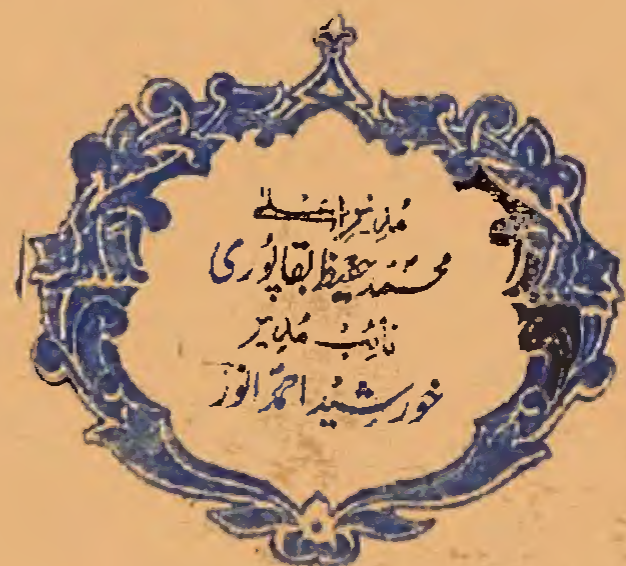 مُدیر اعلیٰ
محمد حفیظ بقاپوری
نائب مدیر
خورشید احمد انور